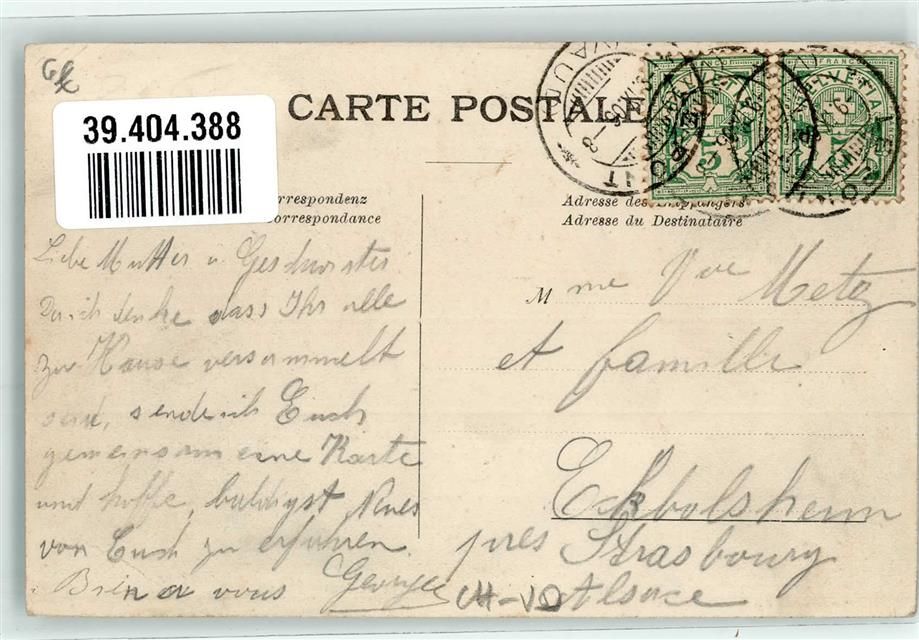 39.404.388
CARTE POSTALE
Correspondance
Adresse des Empfängers
Adresse du Destinataire
Liebe Mutter u. Geschwister
Da ich denke dass Ihr alle
zu Hause versammelt
seid, sende ich Euch
gemeinsam eine Karte
und hoffe, baldigst Neues
von Euch zu erfahren.
Bien à vous George
Mme Vve Metz
et famille
Eckbolsheim
près Strasbourg
Alsace
CH-VD
HELVETIA
FRANCO
5